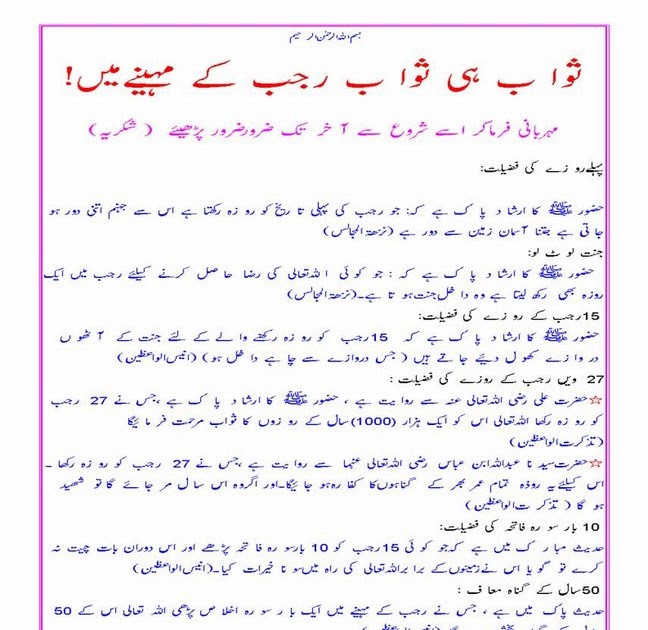 بسم اللہ الرحمٰن الرحیم
ثواب ہی ثواب رجب کے مہینے میں!
مہربانی فرماکر اسے شروع سے آخر تک ضرور ضرور پڑھیئے (شکریہ)
پہلے روزے کی فضیلت:
حضور ﷺ کا ارشاد پاک ہے کہ: جو رجب کی پہلی تاریخ کو روزہ رکھتا ہے اس سے جہنم اتنی دور ہو
جاتی ہے جتنا آسمان زمین سے دور ہے (نزھۃ المجالس)
جنت لوٹ لو:
حضور ﷺ کا ارشاد پاک ہے کہ: جو کوئی اللہ تعالی کی رضا حاصل کرنے کیلئے رجب میں ایک
روزہ بھی رکھ لیتا ہے وہ داخل جنت ہوتا ہے۔(نزھۃ المجالس)
15رجب کے روزے کی فضیلت:
حضور ﷺ کا ارشاد پاک ہے کہ 15رجب کو روزہ رکھنے والے کے لئے جنت کے آٹھوں
دروازے کھول دیئے جاتے ہیں (جس دروازے سے چاہے داخل ہو) (انیس الواعظین)
27 ویں رجب کے روزے کی فضیلت :
☆حضرت علی رضی اللہ تعالی عنہ سے روایت ہے ، حضور ﷺ کا ارشاد پاک ہے ،جس نے 27 رجب
کو روزہ رکھا اللہ تعالی اس کو ایک ہزار (1000)سال کے روزوں کا ثواب مرحمت فرمائیگا
(تذکرت الواعظین)
☆حضرت سیدنا عبداللہ ابن عباس رضی اللہ تعالی عنہما سے روایت ہے ،جس نے 27 رجب کو روزہ رکھا ۔
اس کیلئے یہ روزہ تمام عمر بھر کے گناہوں کا کفارہ ہو جائیگا۔اور اگر وہ اس سال مر جائے گا تو شھید
ہو گا (تذکرت الواعظین)
10 بار سورہ فاتحہ کی فضیلت:
حدیث مبارک میں ہے کہ جو کوئی 15رجب کو 10 بار سورہ فاتحہ پڑھے اور اس دوران بات چیت نہ
کرے تو گویا اس نے زمینوں کے برابر اللہ تعالی کی راہ میں سونا خیرات کیا۔(انیس الواعظین)
50سال کے گناہ معاف :
حدیث پاک میں ہے ، جس نے رجب کے مہینے میں ایک بار سورہ اخلاص پڑھی اللہ تعالی اس کے 50